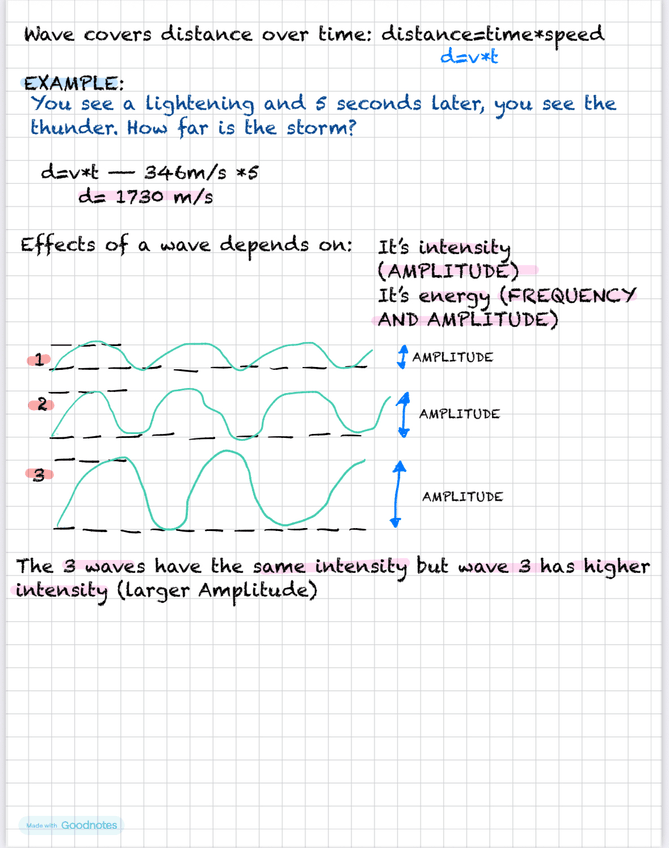 Wave covers distance over time: distance=time*speed
d=v*t
EXAMPLE:
You see a lightening and 5 seconds later, you see the
thunder. How far is the storm?
d=v*t — 346m/s *5
d= 1730 m/s
Effects of a wave depends on:
It's intensity
(AMPLITUDE)
It's energy (FREQUENCY
AND AMPLITUDE)
1
AMPLITUDE
2
AMPLITUDE
3
AMPLITUDE
The 3 waves have the same intensity but wave 3 has higher
intensity (larger Amplitude)
Made with Goodnotes